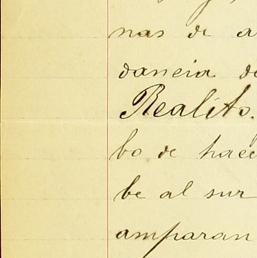 nas de a
dancia de
Realito.
bo de hace
be al sur
amparan